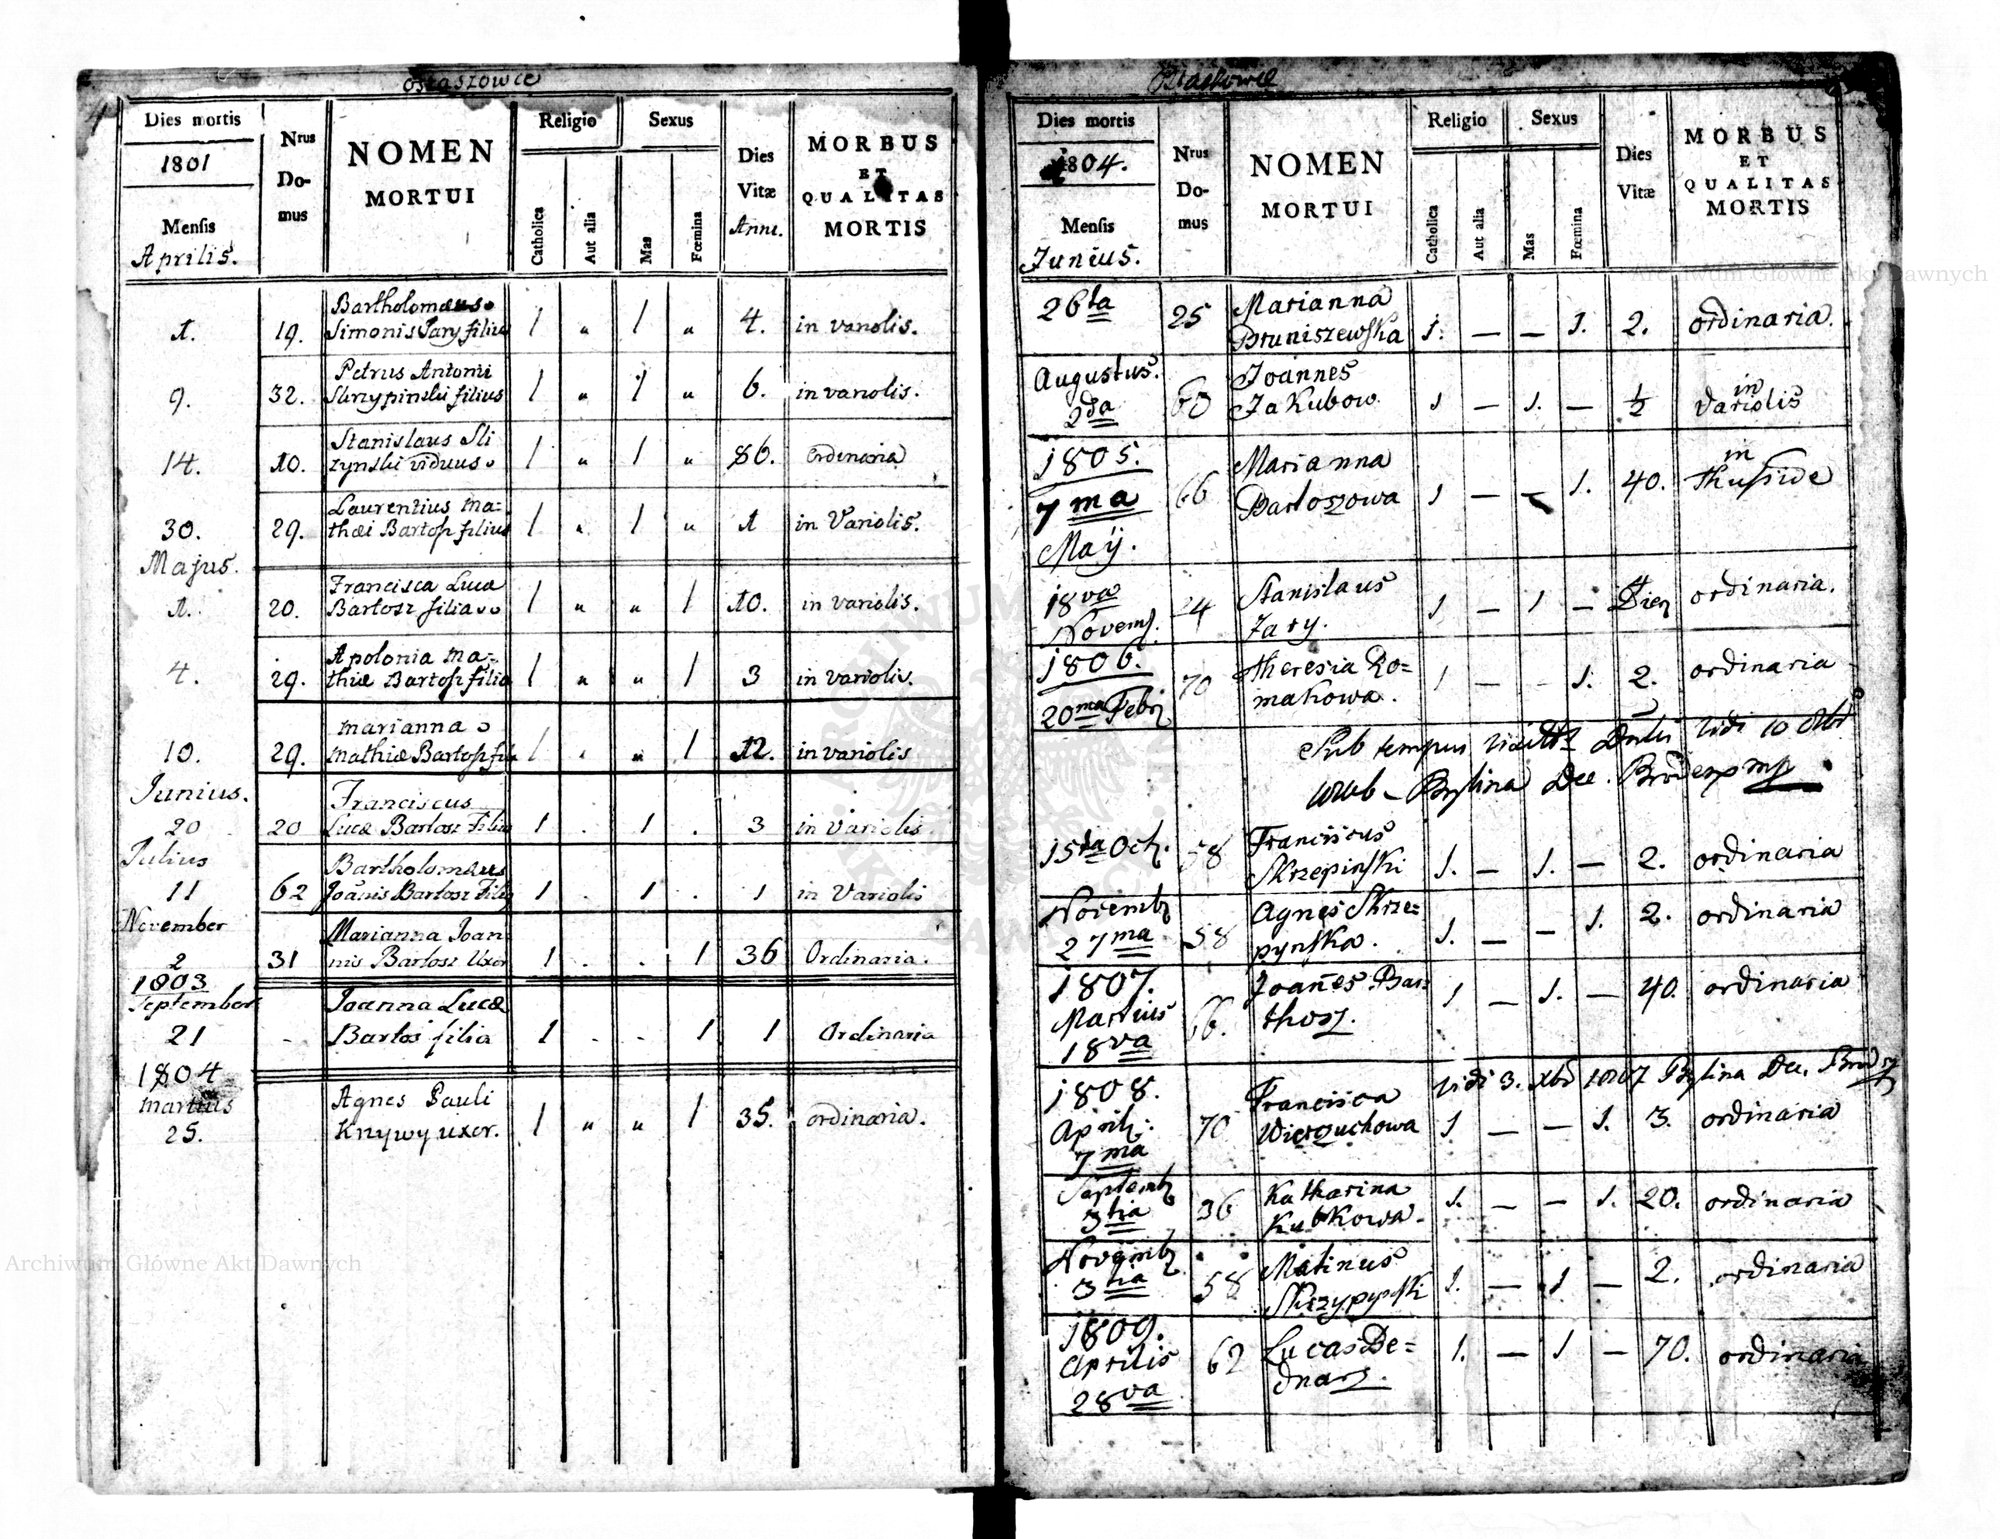 Ostaszowce
Dies mortis
1801
Mensis
Aprilis.
Nrus
Do-
mus
NOMEN
MORTUI
Religio
Catholica
Aut alia
Sexus
Mas
Fœmina
Dies
Vitæ
Anni.
MORBUS
ET
QUALITAS
MORTIS
Bartholomæus
1. 19. Simonis Jary filius 1 " 1 " 4. in variolis.
Petrus Antonii
9. 32. Skrzypinski filius 1 " 1 " 6. in variolis.
Stanislaus Sli
14. 10. zynski viduus 1 " 1 " 86. ordinaria
Laurentius Ma-
30. 29. thæi Bartosz filius 1 " 1 " 1 in Variolis.
Majus.
Francisca Lucæ
1. 20. Bartosz filia 1 " " 1 10. in variolis.
Apolonia Ma-
4. 29. thiæ Bartosz filia 1 " " 1 3 in variolis.
Marianna
10. 29. Mathiæ Bartosz fil 1 " " 1 12. in variolis
Junius.
Franciscus
20 20 Lucæ Bartosz Filius 1 . 1 . 3 in Variolis
Julius
Bartholomæus
11 62 Joãnis Bartosz Filius 1 . 1 . 1 in Variolis
November
Marianna Joan
2 31 nis Bartosz Uxor 1 . . 1 36 Ordinaria.
1803
September
Joanna Lucæ
21 - Bartos filia 1 . . 1 1 Ordinaria
1804
Martius
Agnes Pauli
25. Knywy uxor. 1 " " 1 35. ordinaria.
Ostaszowce
Dies mortis
1804.
Mensis
Junius.
Nrus
Do-
mus
NOMEN
MORTUI
Religio
Catholica
Aut alia
Sexus
Mas
Fœmina
Dies
Vitæ
MORBUS
ET
QUALITAS
MORTIS
26ta 25 Marianna
Bruniszewska 1. — — 1. 2. ordinaria.
Augustus. Joannes in
2da 60 Jakubow 1 — 1. — ½ variolis
1805. Marianna in
7ma 66 Bartoszowa 1 — — 1. 40. thusside
Maij.
18va 24 Stanislaus
Novemb. Jary. 1 — 1 — Dier ordinaria.
1806. Theresia Ro=
20ma Febr 70 makowa. 1 — — 1. 2. ordinaria
Sub tempus visitae Vidi 10
Bylina Dec. Brodensis mp
15ta Octb. 58 Franciscus
Skrzepinski 1. — 1. — 2. ordinaria
Novembr Agnes Skrze=
27ma 58 pynska. 1. — — 1. 2. ordinaria
1807. Joañes Bar=
Martius 66. thosz. 1 — 1. — 40. ordinaria
18va
vidi 3. Xbr 1807 Bylina Dec. Brod
1808. Francisca
April: 70 Wierzuchowa 1. — — 1. 3. ordinaria
7ma
Septemb Katharina
3tia 36 Kubkowa. 1. — — 1. 20. ordinaria
Novembr Matinus
3tia 58 Skrzypynski 1. — 1 — 2. ordinaria
1809. Lucas Be=
Aprilis 62 dnarz. 1. — 1 — 70. ordinaria
28va
Archiwum Główne Akt Dawnych
Archiwum Główne Akt Dawnych
ARCHIWUM GŁÓWNE AKT DAWNYCH